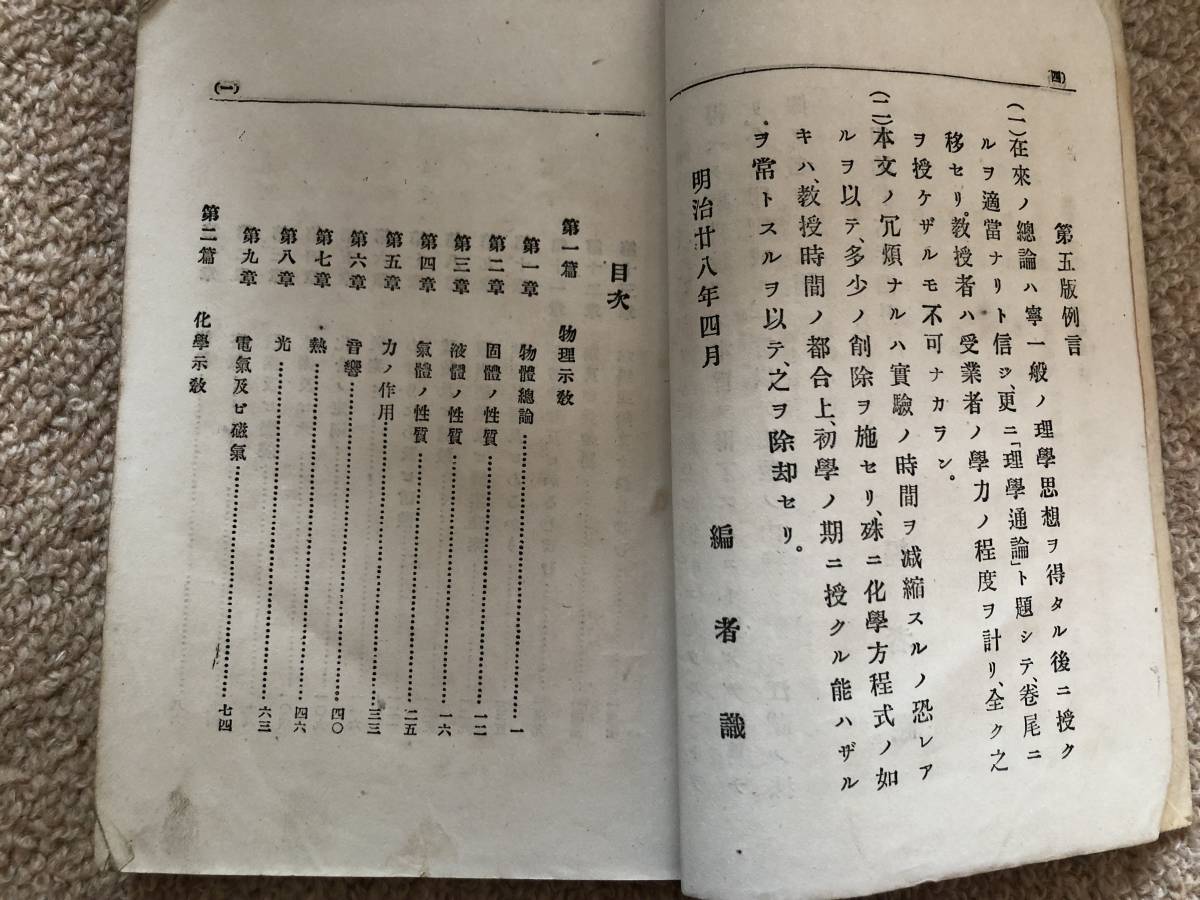 (四)
第五版例言
(一)在來ノ總論ハ寧一般ノ理學思想ヲ得タル後ニ授ク
ルヲ適當ナリト信ジ、更ニ「理學通論」ト題シテ、卷尾ニ
移セリ。教授者ハ受業者ノ學力ノ程度ヲ計リ、全ク之
ヲ授ケザルモ不可ナカラン。
(二)本文ノ冗煩ナルハ實驗ノ時間ヲ減縮スルノ恐レア
ルヲ以テ、多少ノ削除ヲ施セリ、殊ニ化學方程式ノ如
キハ、教授時間ノ都合上、初學ノ期ニ授クル能ハザル
ヲ常トスルヲ以テ、之ヲ除却セリ。
明治廿八年四月
編者識
(一)
目次
第一篇 物理示教
第一章 物體總論……一
第二章 固體ノ性質……一二
第三章 液體ノ性質……一六
第四章 氣體ノ性質……二五
第五章 力ノ作用……三三
第六章 音響……四〇
第七章 熱……四六
第八章 光……六三
第九章 電氣及ビ磁氣……七四
第二篇 化學示教